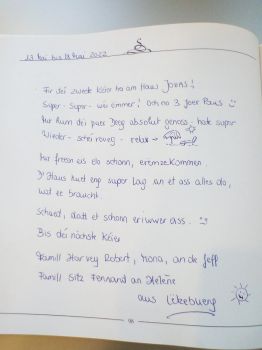 13. Mai bis 18. Mai 2022
Fir déi zweete Kéier hei am Haus Jonas!
Super - Super - wéi ëmmer! Och no 3 Joer Paus
Mir hun déi puer Deeg absolut genoss - hate super
Wieder - schéi roueg - relax
Mir freeën eis elo schonn, erëmzekommen
D'Haus huet eng super Lag an et ass alles do,
wat ee braucht.
Schued, datt et schonn eriwwer ass.
Bis déi nächste Kéier
Famill Harvey Robert, Mona, an de Jeff
Famill Sitz Fernand an Helene
aus Lëtzebuerg